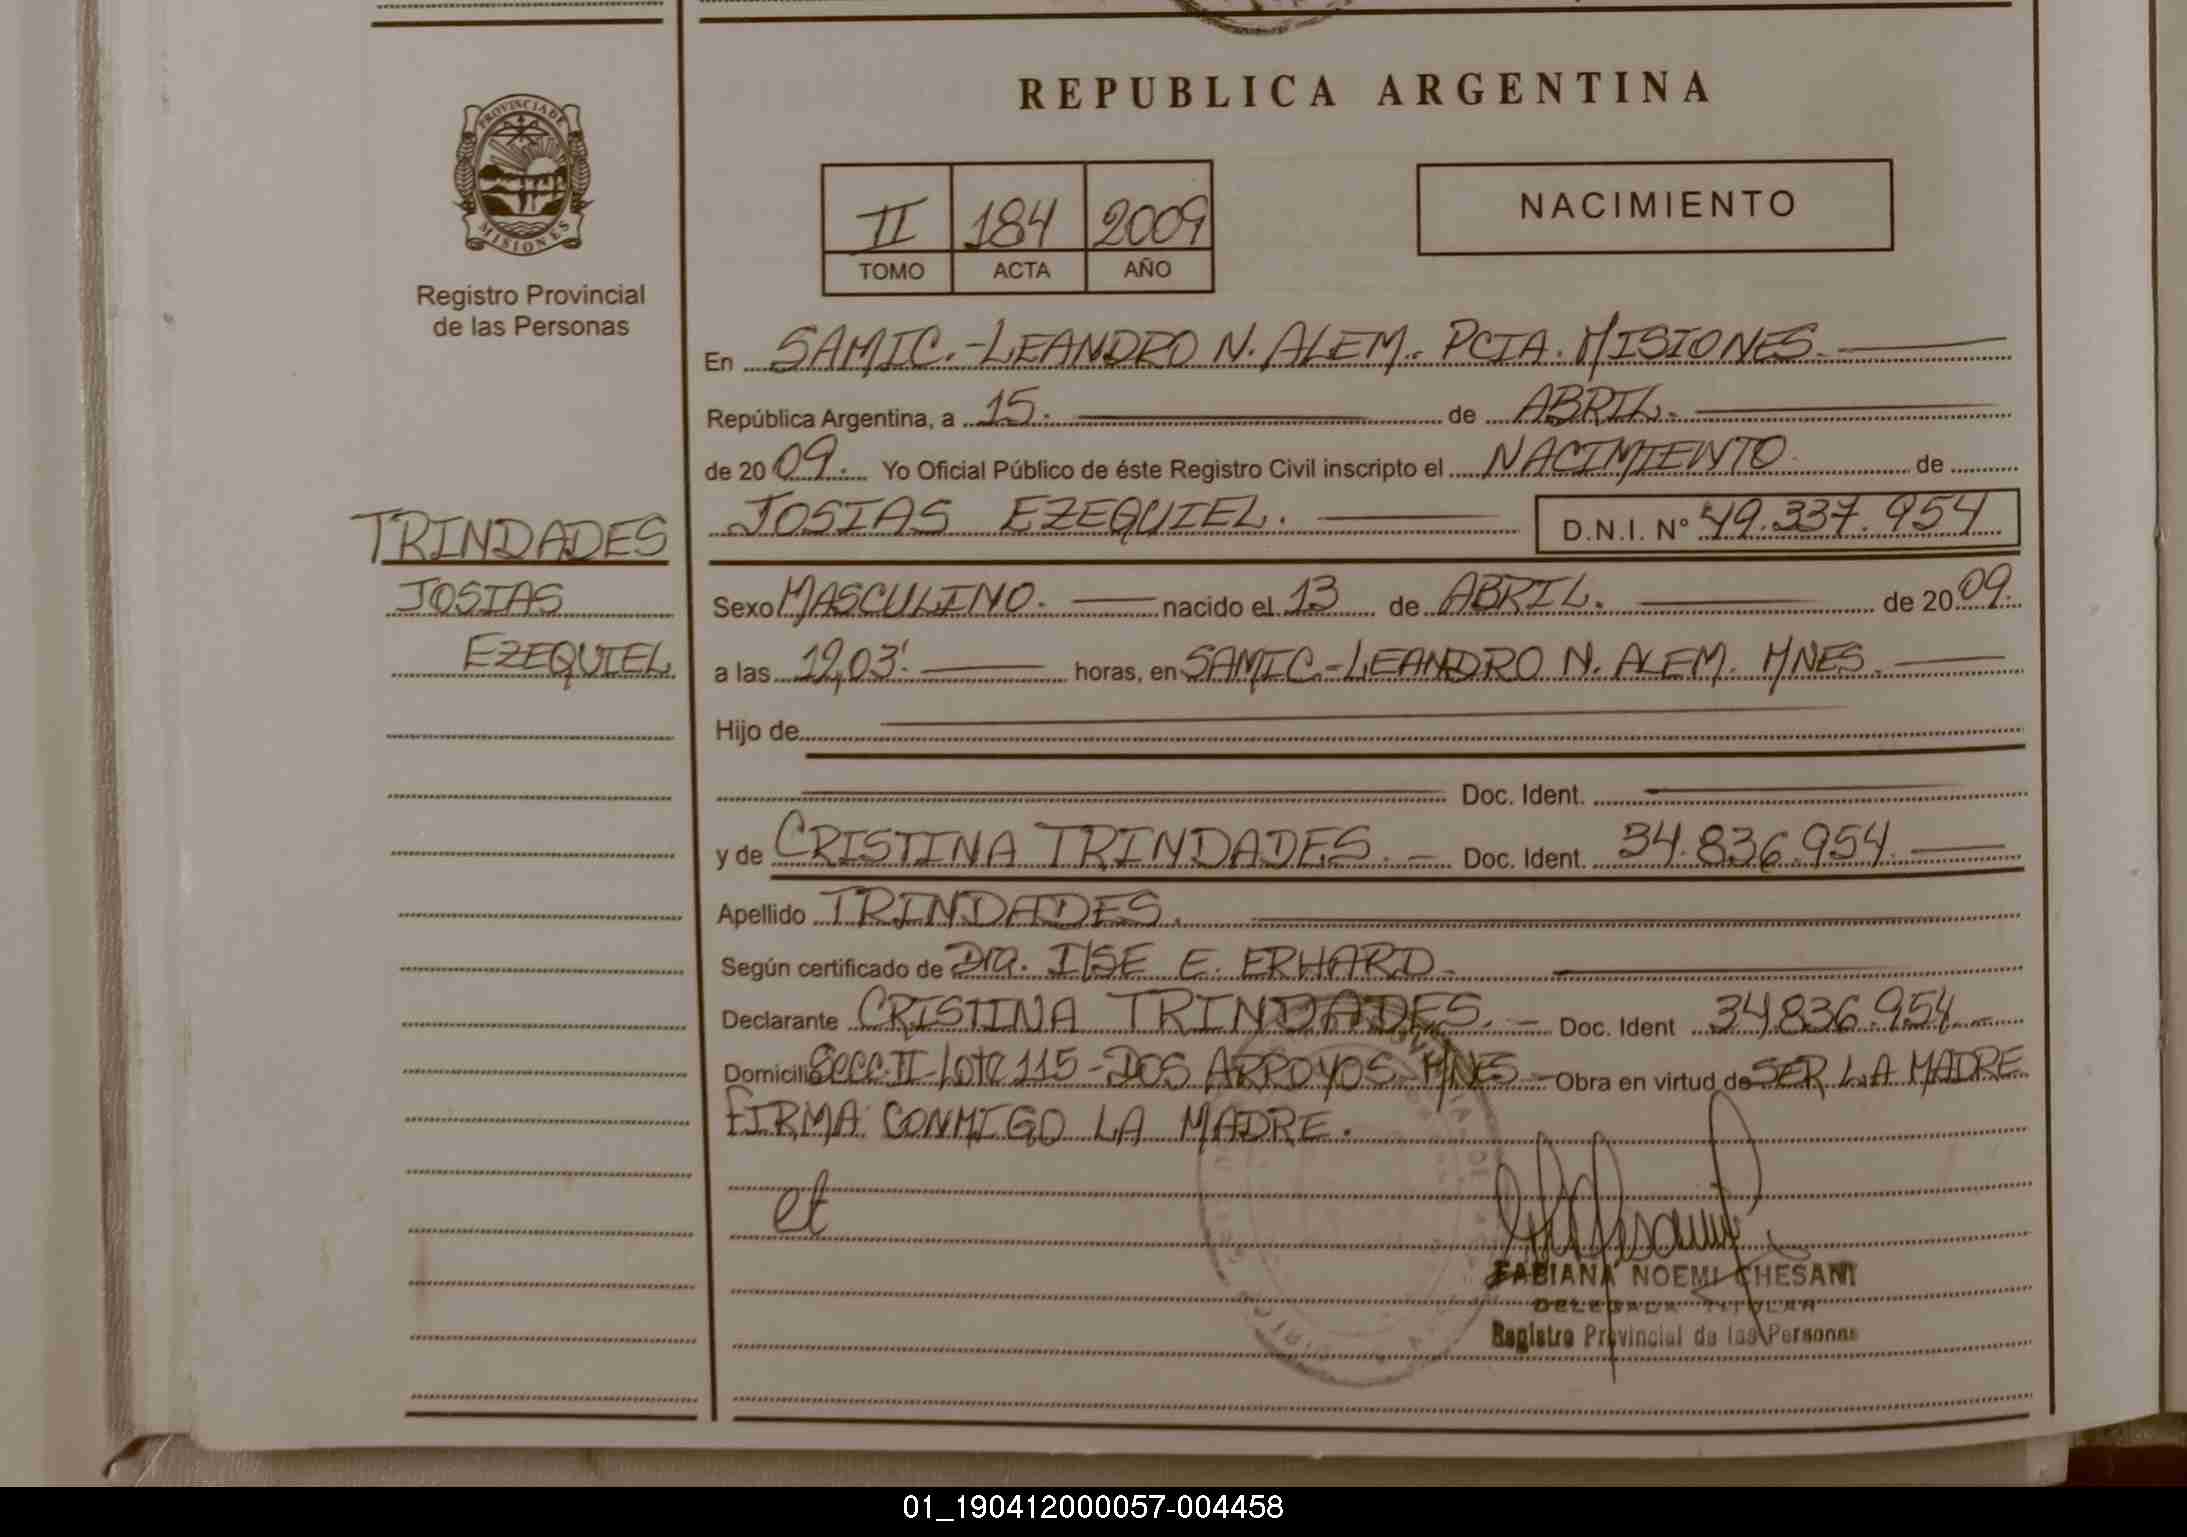 REPUBLICA ARGENTINA
PROVINCIA DE
MISIONES
Registro Provincial
de las Personas
II 184 2009
TOMO ACTA AÑO
NACIMIENTO
En SAMIC.-LEANDRO N. ALEM. PCIA. MISIONES.
República Argentina, a 15. de ABRIL.
de 2009. Yo Oficial Público de éste Registro Civil inscripto el NACIMIENTO de
JOSIAS EZEQUIEL. D.N.I. N° 49.337.954
TRINDADES
JOSIAS
EZEQUIEL
Sexo MASCULINO. nacido el 13 de ABRIL. de 2009.
a las 12,03'. horas, en SAMIC.-LEANDRO N. ALEM. MNES.
Hijo de
Doc. Ident.
y de CRISTINA TRINDADES. - Doc. Ident. 34.836.954.
Apellido TRINDADES.
Según certificado de Dra. ILSE E. ERHARD.
Declarante CRISTINA TRINDADES. - Doc. Ident 34.836.954 -
Domicilio Secc. II-Lote 115-DOS ARROYOS-MNES - Obra en virtud de SER LA MADRE
FIRMA CONMIGO LA MADRE.
et
FABIANA NOEMI CHESANI
DELEGADA TITULAR
Registro Provincial de las Personas
01_190412000057-004458